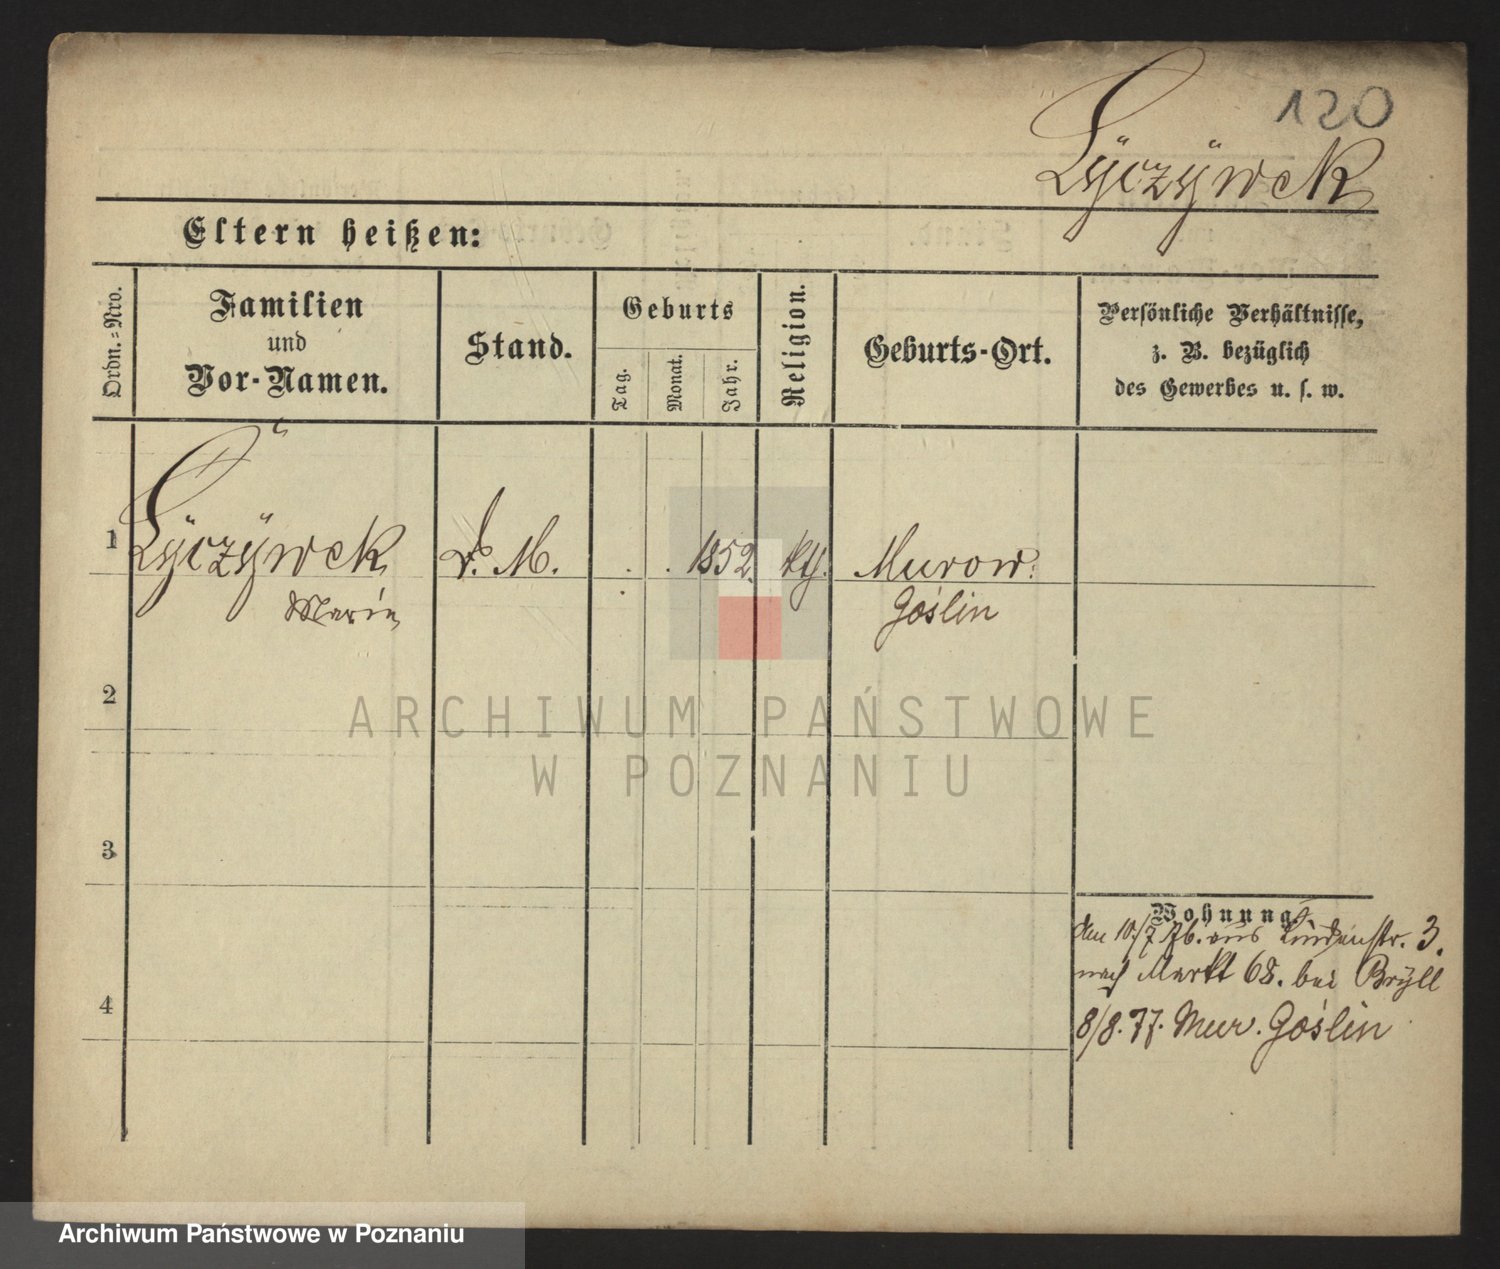 120
Lÿczÿwek
Eltern heißen:
Ordn.=Nro.
Familien
und
Vor-Namen.
Stand.
Geburts
Tag.
Monat.
Jahr.
Religion.
Geburts-Ort.
Persönliche Verhältnisse,
z. B. bezüglich
des Gewerbes u. s. w.
1 Lÿczÿwek D. M. . . 1852. kth. Murow:
Marie Goślin
2
ARCHIWUM PAŃSTWOWE
W POZNANIU
3
Wohnung.
den 10./7 76. aus Lindenstr. 3.
nach Markt 68. bei Brÿll
4
8/8. 77. Mur. Goślin
Archiwum Państwowe w Poznaniu